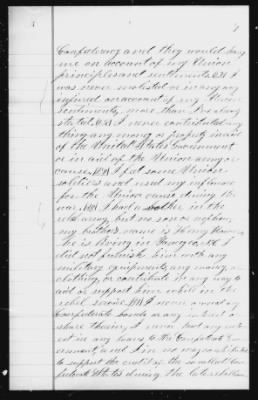 Confederacy and they would hang
me on account of my Union
principles and sentiments. I
was never molested or in any way
injured on account of my Union
sentiments, more than I've already
stated. I never contributed any
thing any money or property in aid
of the United States Government
or in aid of the Union army or
cause. I fed some Union
soldiers and used my influence
for the Union cause during the
war. I had a brother in the
rebel army, but no son or nephew,
my brother's name is Henry
he is living in Georgia. I
did not furnish him with any
military equipments, any money,
clothing, or contribute in any way to
aid or support him while in the
rebel service. I never owned any
Confederate bonds or any interest or
share therein, I never had any
in any loans to the Confederate
Government, and I in no way contributed
to support the credit of the so called
Confederate States during the late rebellion